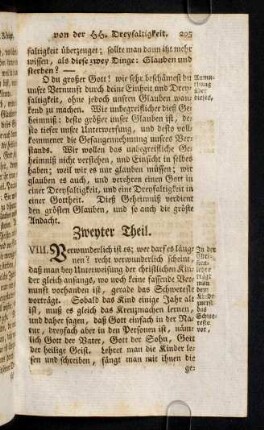 von der HH. Dreyfaltigkeit. 205
faltigkeit überzeuget; sollte man dann itzt mehr
wissen, als diese zwey Dinge: Glauben und
sterben? —
O du großer Gott! wie sehr beschämest du
unsre Vernunft durch deine Einheit und Drey-
faltigkeit, ohne jedoch unsren Glauben wan-
kend zu machen. Wie unbegreiflicher dieß Ge-
heimniß ist: desto größer unser Glauben ist; de-
sto tiefer unsre Unterwerfung, und desto voll-
kommener die Gefangennehmung unsers Ver-
stands. Wir wollen das unbegreifliche Ge-
heimniß nicht verstehen, und Einsicht in selbes
haben; weil wir es nur glauben müssen; wir
glauben es auch, und verehren einen Gott in
einer Dreyfaltigkeit, und eine Dreyfaltigkeit in
einer Gottheit. Dieß Geheimniß verdient
den grösten Glauben, und so auch die größte
Andacht.
Zweyter Theil.
VIII. Verwunderlich ist es; wer darf es läug-
nen? recht verwunderlich scheint,
daß man bey Unterweisung der christlichen Kin-
der gleich anfangs, wo noch keine fassende Ver-
nunft vorhanden ist, gerade das Schwereste
vorträgt. Sobald das Kind einige Jahr alt
ist, muß es gleich das Kreuzmachen lernen,
und daher sagen, daß Gott einfach in der Na-
tur, dreyfach aber in den Personen ist, näm-
lich Gott der Vater, Gott der Sohn, Gott
der heilige Geist. Lehret man die Kinder le-
sen und schreiben, fängt man mit ihnen die
ge-
über
In der
man
dem
das
vor,